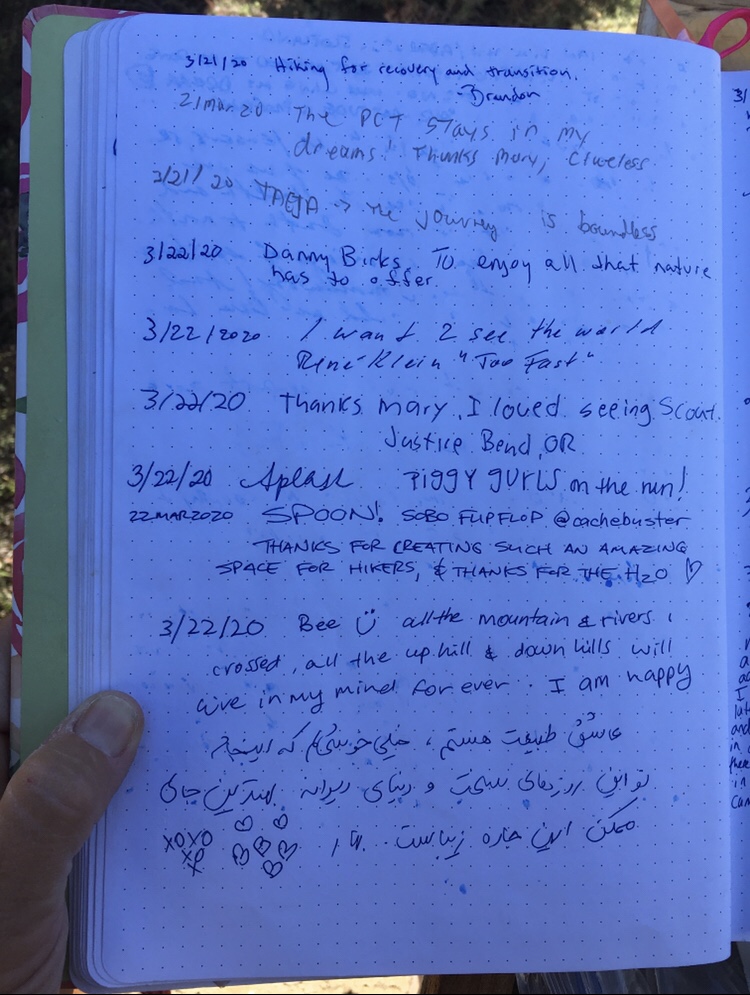 3/21/20 Hiking for recovery and transition.
- Brandon
21 Mar 20 The PCT stays in my
dreams! Thanks Mary, Clueless
2/21/20 → The journey is boundless
3/22/20 Danny Birks To enjoy all that nature
has to offer.
3/22/2020 I want 2 see the world
René Klein "Too Fast"
3/22/20 Thanks Mary. I loved seeing Scout.
Justice Bend, OR
3/22/20 Splash PIGGY GURLS on the run!
22 MAR 2020 SPOON! SOBO FLIP FLOP @cachebuster
THANKS FOR CREATING SUCH AN AMAZING
SPACE FOR HIKERS, & THANKS FOR THE H2O ♡
3/22/20 Bee all the mountain & rivers i
crossed, all the up hill & down hills will
live in my mind for ever. I am happy
عاشق طبیعت هستم، خیلی خوشحالم که اینجام
تو این روزهای سخت و دنیای دیوانه بهترین جای
ممکن این جاده زیباست
XOXO
XO
X